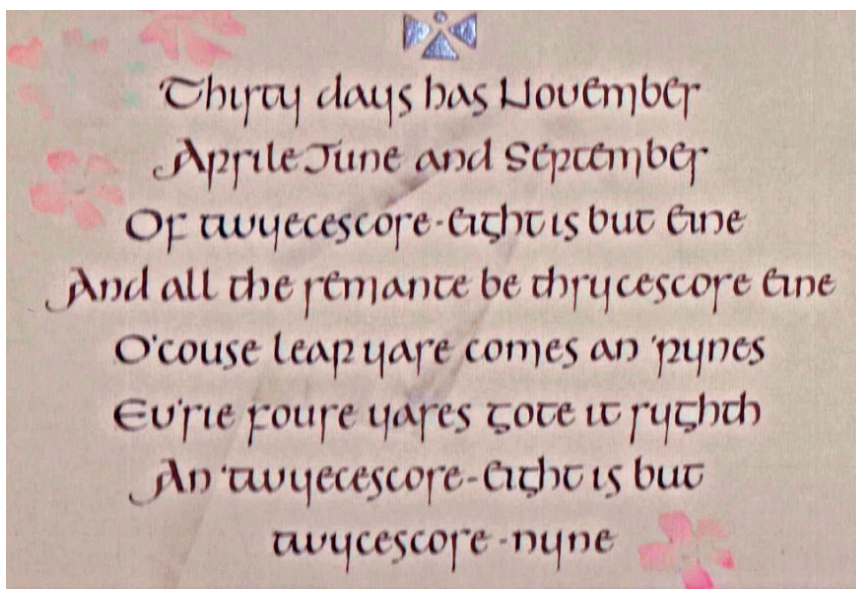 Thirty days has November
Aprile June and September
Of twyecescore-eight is but eine
And all the remante be thrycescore eine
O'couse leap yare comes an 'pynes
Ev'rie foure yares gote it ryghth
An 'twyecescore-eight is but
twycescore-nyne